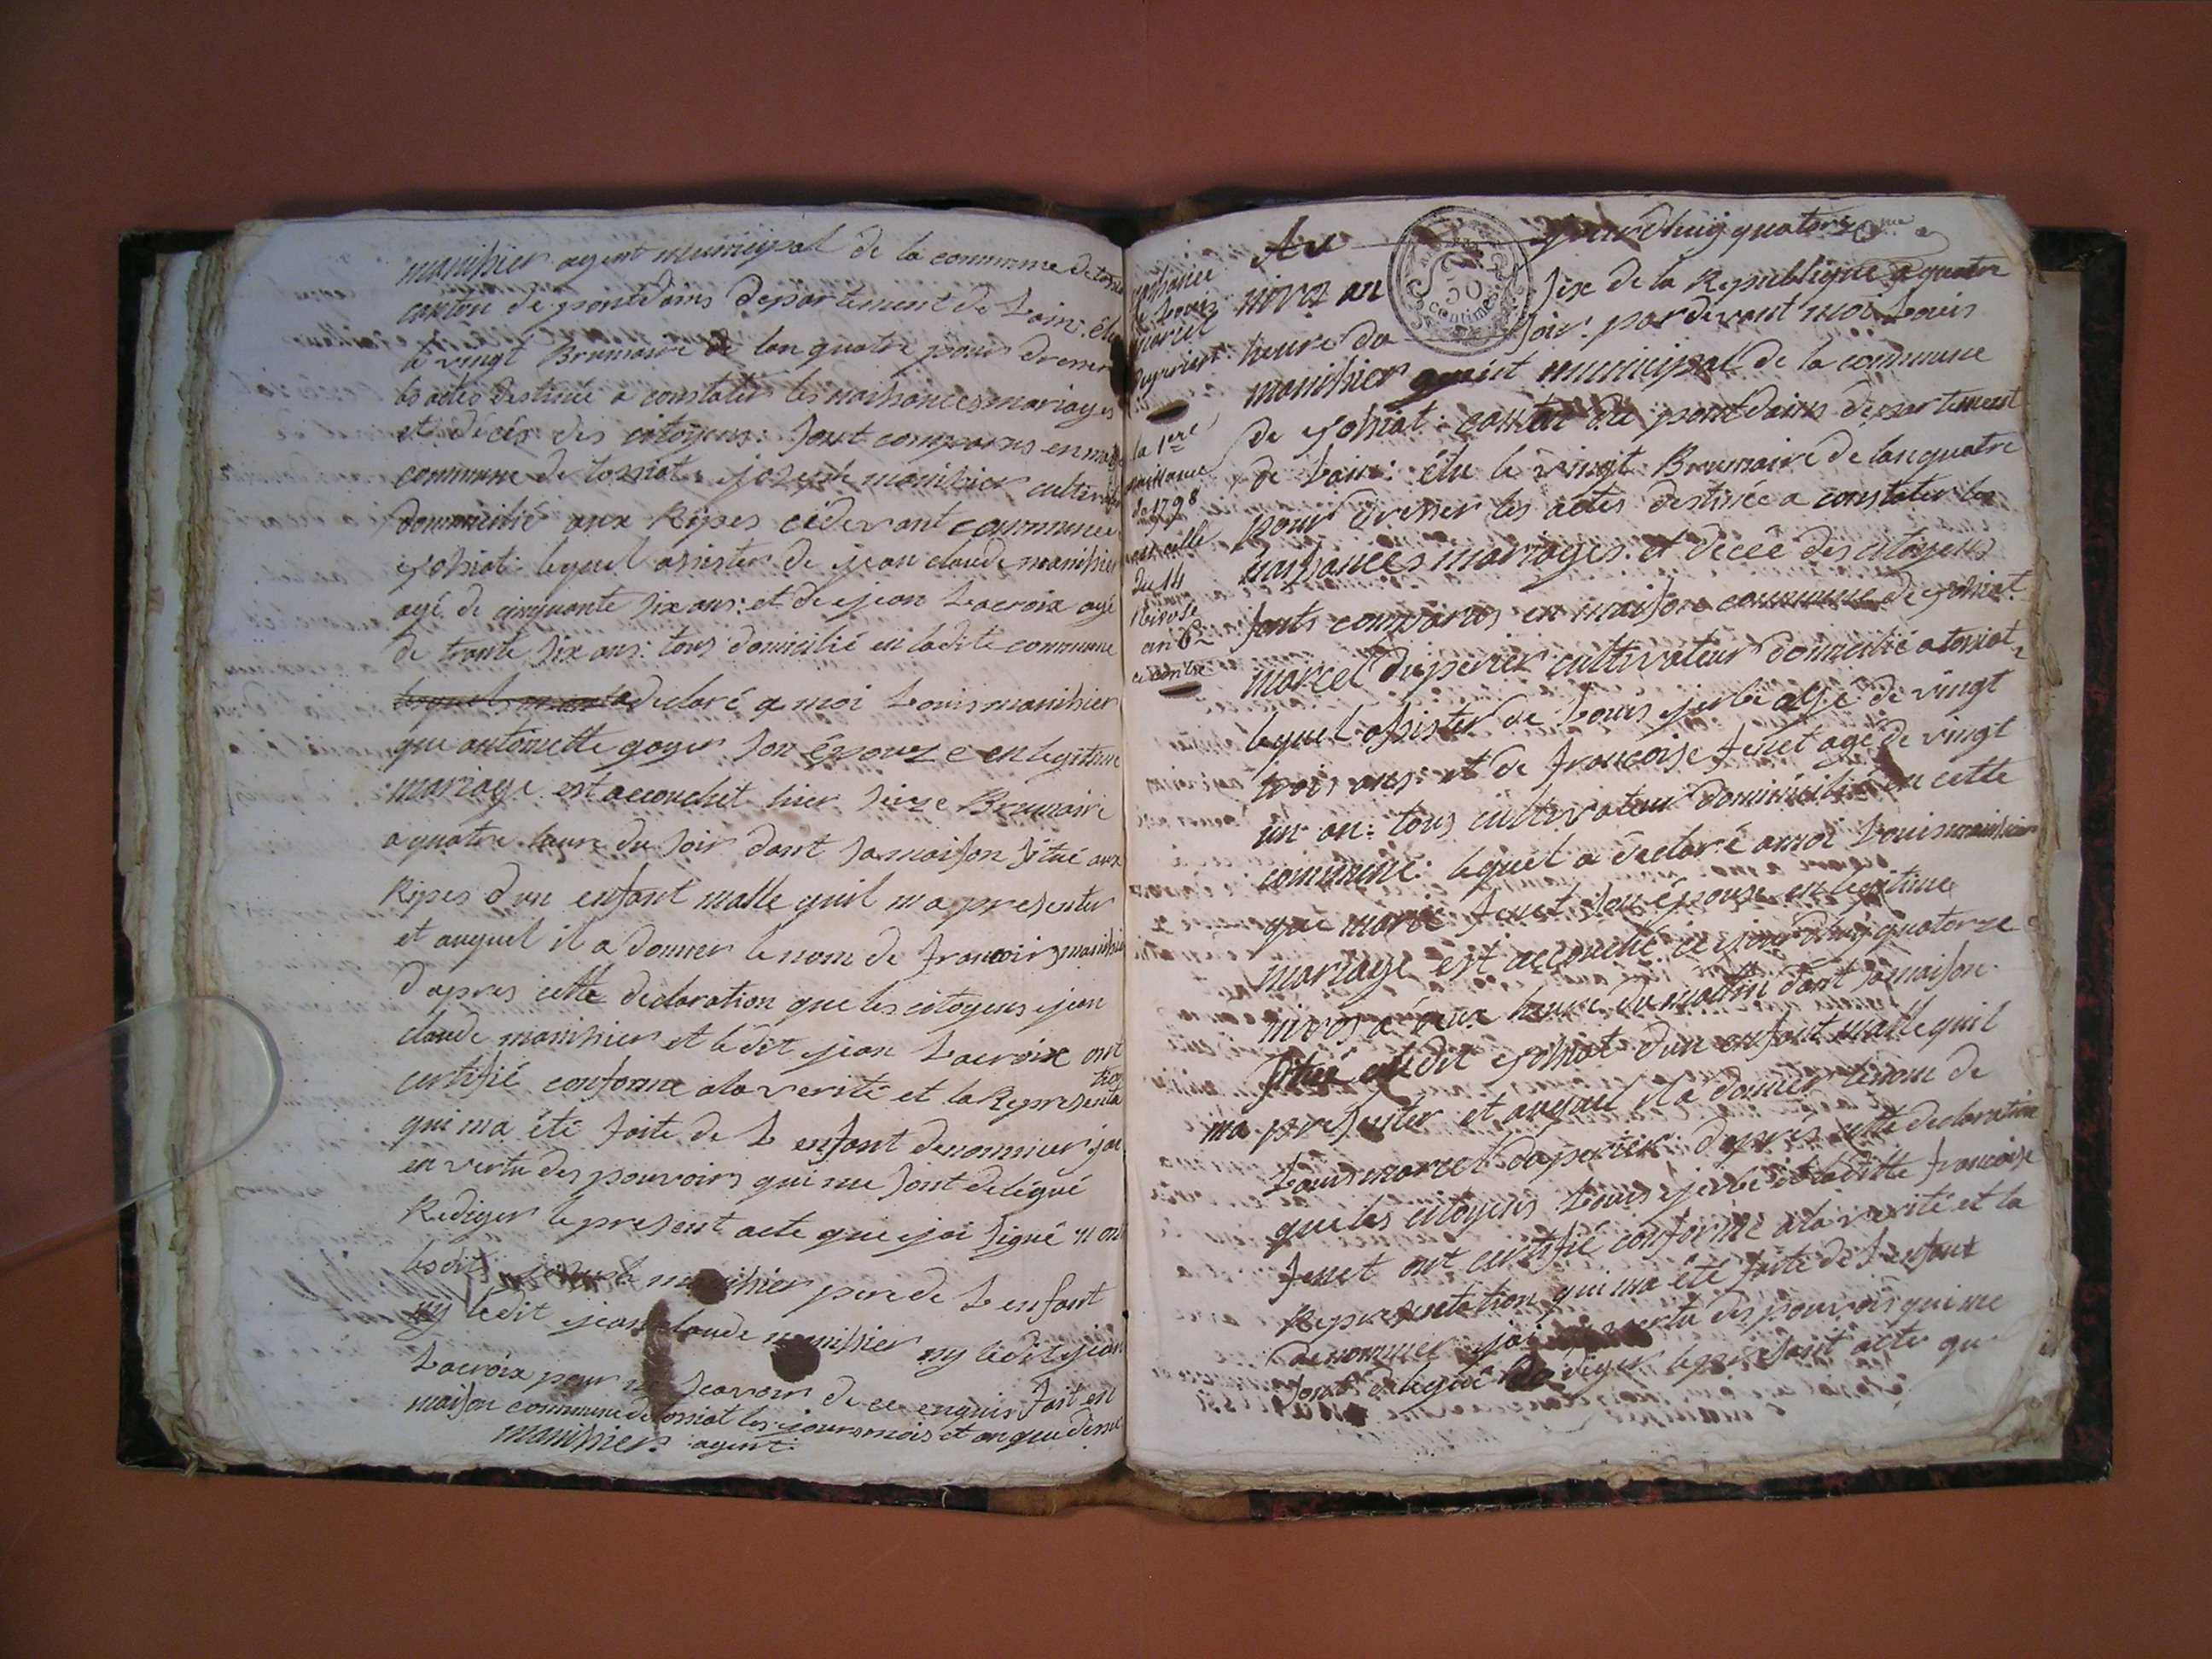 manihier agent municipal de la commune de tossiat
canton de pontdains departement de Lain. élu
le vingt Brumaire de lan quatre pour dresser
les actes destinée a constater les naissances mariages
et décés des citoyens: sont comparus en maison
commune de tossiat. jozeph manihier cultivateur
dommicilié aux Rippes cidevant commune
jossiat. lequel assister de jean claude manihier
agé de cinquante six ans: et de jean Lacroix agé
de trante six ans: tous domicilié en ladite commune
a declaré a moi Louis manihier
que antoinette goyer son épouze en legitime
mariage est accouchet hier seize Brumaire
a quatre heure du soir dant sa maison situé aux
Ripes dun enfant malle quil ma presenter
et auquel il a donner le nom de francois manihier
dapres cette declaration que les citoyens jean
claude manihier et ledit jean Lacroix ont
certifié conforme ala verité et la Representation
qui ma été faite de Lenfant denommer jai
en vertu des pouvoirs qui me sont delégué
Rediger le present acte que jai signé n ont
lesdits jozeph manihier pere de Lenfant
ny ledit jean claude manihier ny ledit jean
Lacroix pour ne scavoir de ce enquis fait en
maison commune de tossiat les jours mois et an que dessus
manihier. agent.
naissance
de Louis
marcel
duperier
la 1ere
naissance
de 1798
est celle
du 14
Nivose
an 6
ci contre
Au jourdhuij quatorzeme
nivoz an six de la Republique a quatre
heure du soir. pardevant moi Louis
manihier agent municipal de la commune
de jossiat. canton du pont dains departement
de Lain. élu le vingt Brumaire de lan quatre
pour dresser les actes destinée a constater les
naissances mariages. et deceé des citoyens
sonts comparus en maison commune de jossiat
marcel duperier cultivateur domicilié a tossiat
lequel assister de Louis jerbe agé de vingt
trois ans: et de francoise fenet agé de vingt
un an: tous cultivateur dommicilié en cette
commune: lequel a declaré amoi Louis manihier
que marie fenet son épouse en legitime
mariage est accouché ce jourdhuij quatorze
nivos a deux heure du matin dant sa maison
situé audit jossiat dun enfant malle quil
ma presenter et auquel il a donner le nom de
Louis marcel duperier. dapres cette declaration
que les citoyens Louis jerbe et laditte francoise
fenet ont certifié conforme ala verité et la
Representation qui ma été faite de Lenfant
denommer jai en vertu des pouvoirs qui me
sont delegué Rediger le present acte que